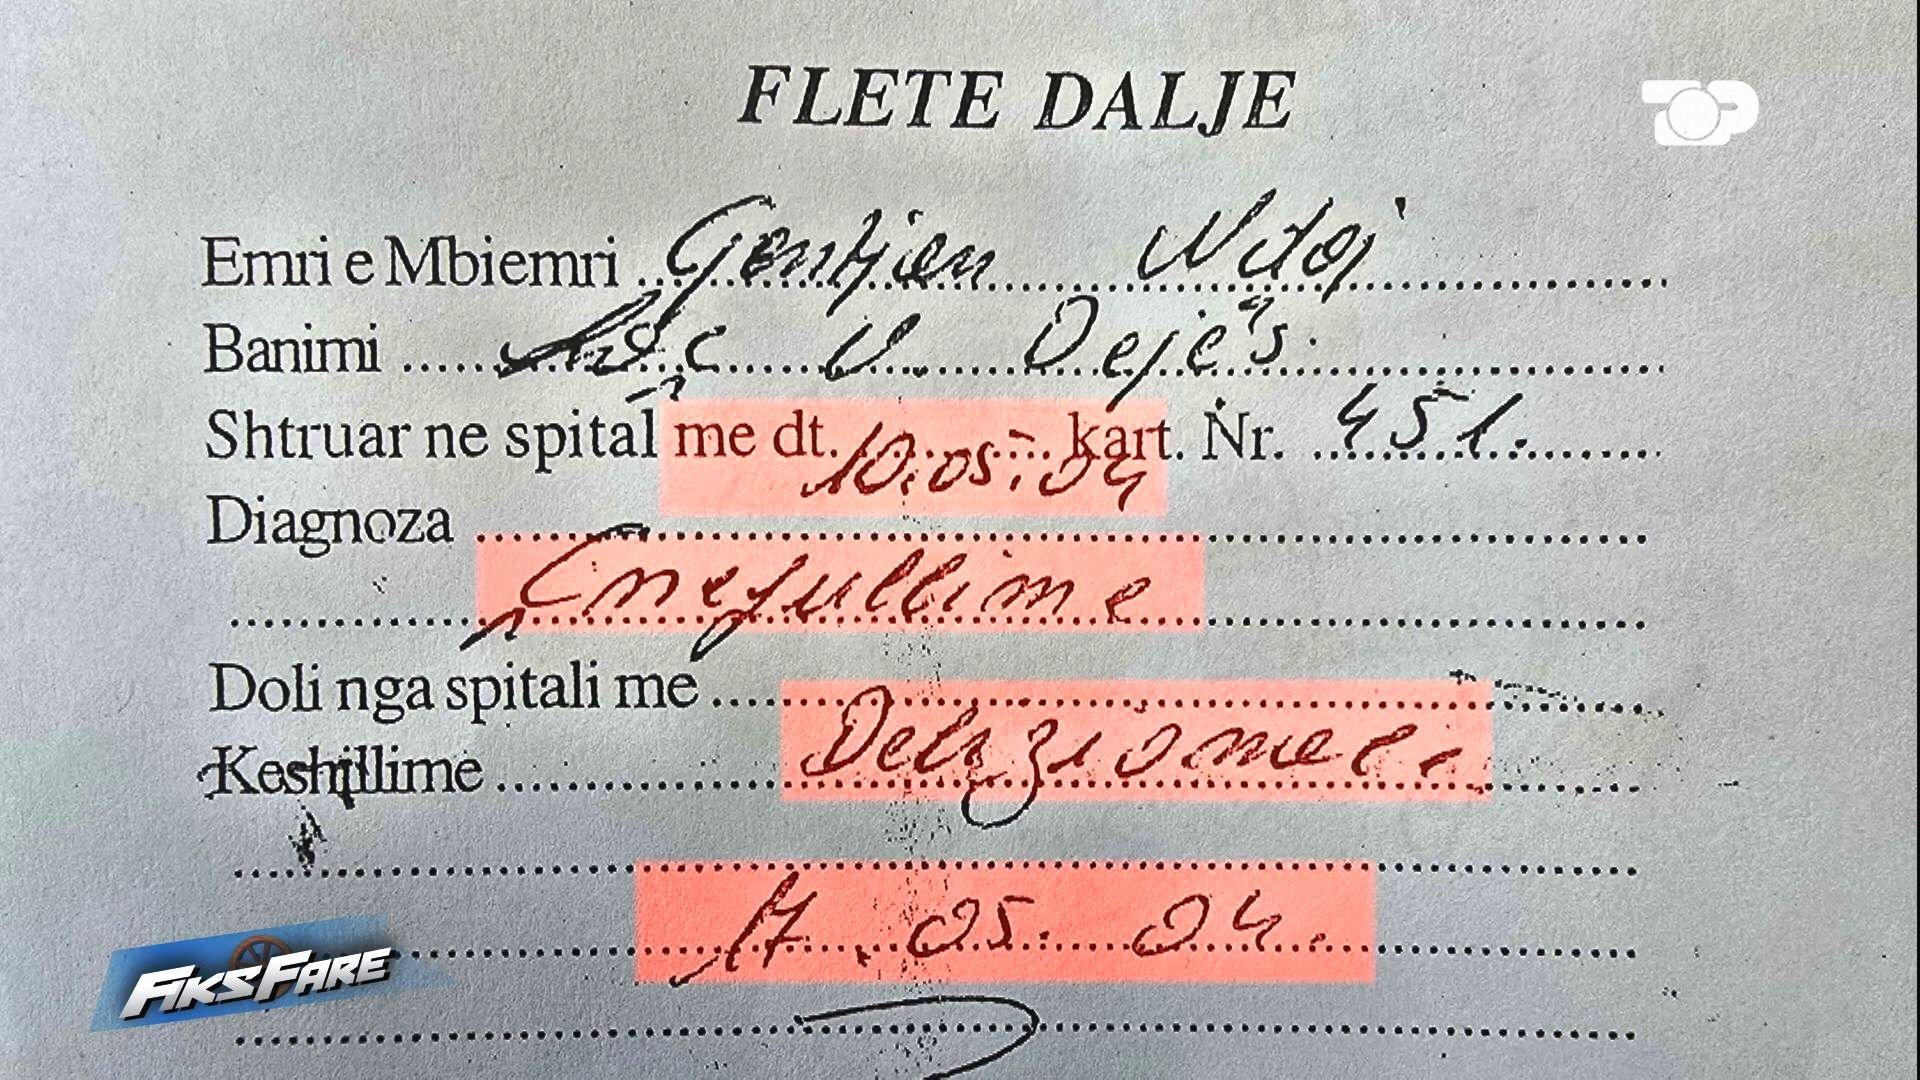 TOP
FLETE DALJE
Emri e Mbiemri Gentjan Ndoj
Banimi V. Dejës.
Shtruar ne spital me dt. 10.05.04 kart. Nr. 451.
Diagnoza
Doli nga spitali me
Keshillime
17.05.04.
FIKSFARE